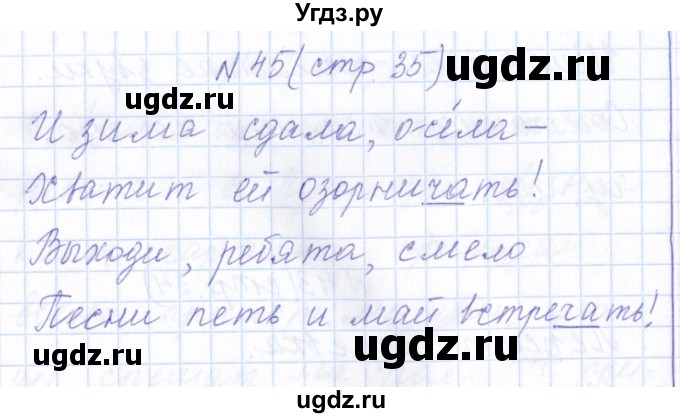 Угдз.ру
N 45 (стр. 35)
ugdz.ru ugdz.ru
И зима сдала, осе́ла –
Хватит ей озорничать!
ugdz.ru
Выходи, ребята, смело
ugdz.ru
Песни петь и май встречать!
ugdz.ru ugdz.ru